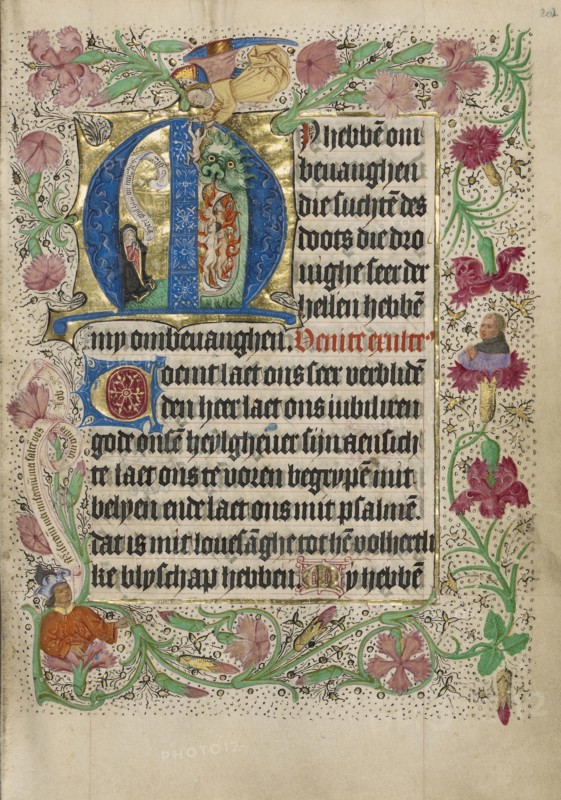 My hebbē om
beuanghen
die suchtē des
doots die dro
uighe seer der
hellen hebbē
my ombeuanghen. Venite exulte
Coemt laet ons seer verblidē
den heer laet ons iubiliren
gode onsē heylgheuer sijn aensich
te laet ons te voren begrypē mit
belyen ende laet ons mit psalmē.
dat is mit louesāghe tot hē volhertli
ke blyschap hebben. My hebbē
PHOTO12